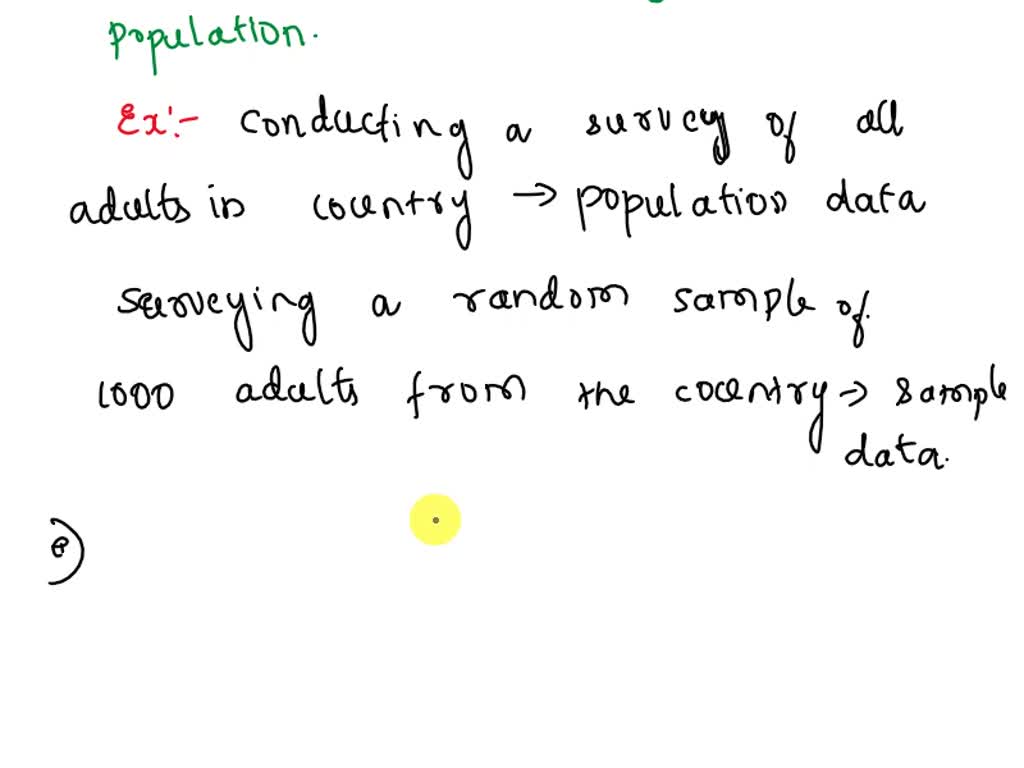 population.
Ex:- conducting a survey of all
adults in country → population data
surveying a random sample of
1000 adults from the country → sample
data.
e)